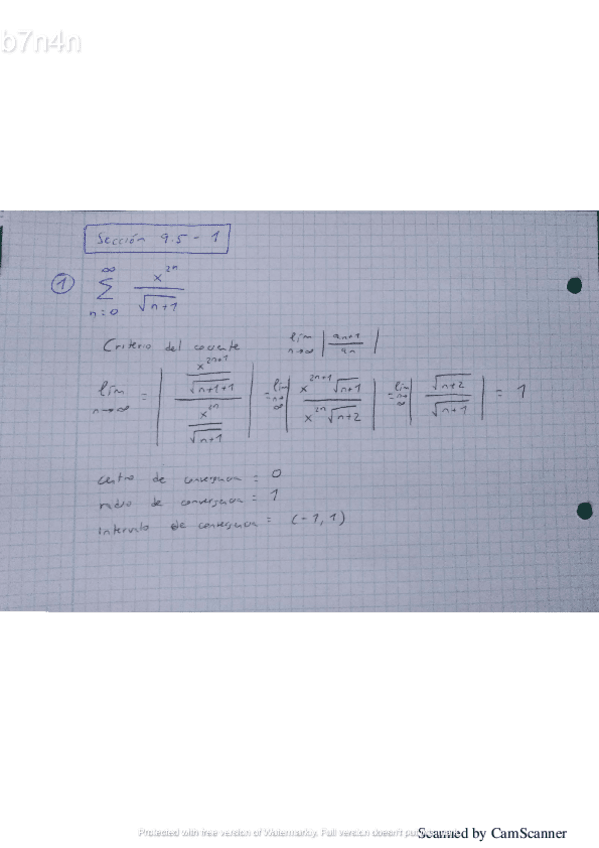 b7n4n
Sección 9.5 - 1
① ∑_{n=0}^{∞} x^{2n} / √(n+1)
Criterio del cociente lím_{n→∞} | a_{n+1} / a_n |
lím_{n→∞} = | (x^{2n+1} / √(n+1+1)) / (x^{2n} / √(n+1)) | = lím_{n→∞} | x^{2n+1} √(n+1) / (x^{2n} √(n+2)) | = lím_{n→∞} | √(n+2) / √(n+1) | = 1
centro de convergencia = 0
radio de convergencia = 1
Intervalo de convergencia = (-1, 1)
Protected with free version of Watermarkly. Full version doesn't put
Scanned by CamScanner